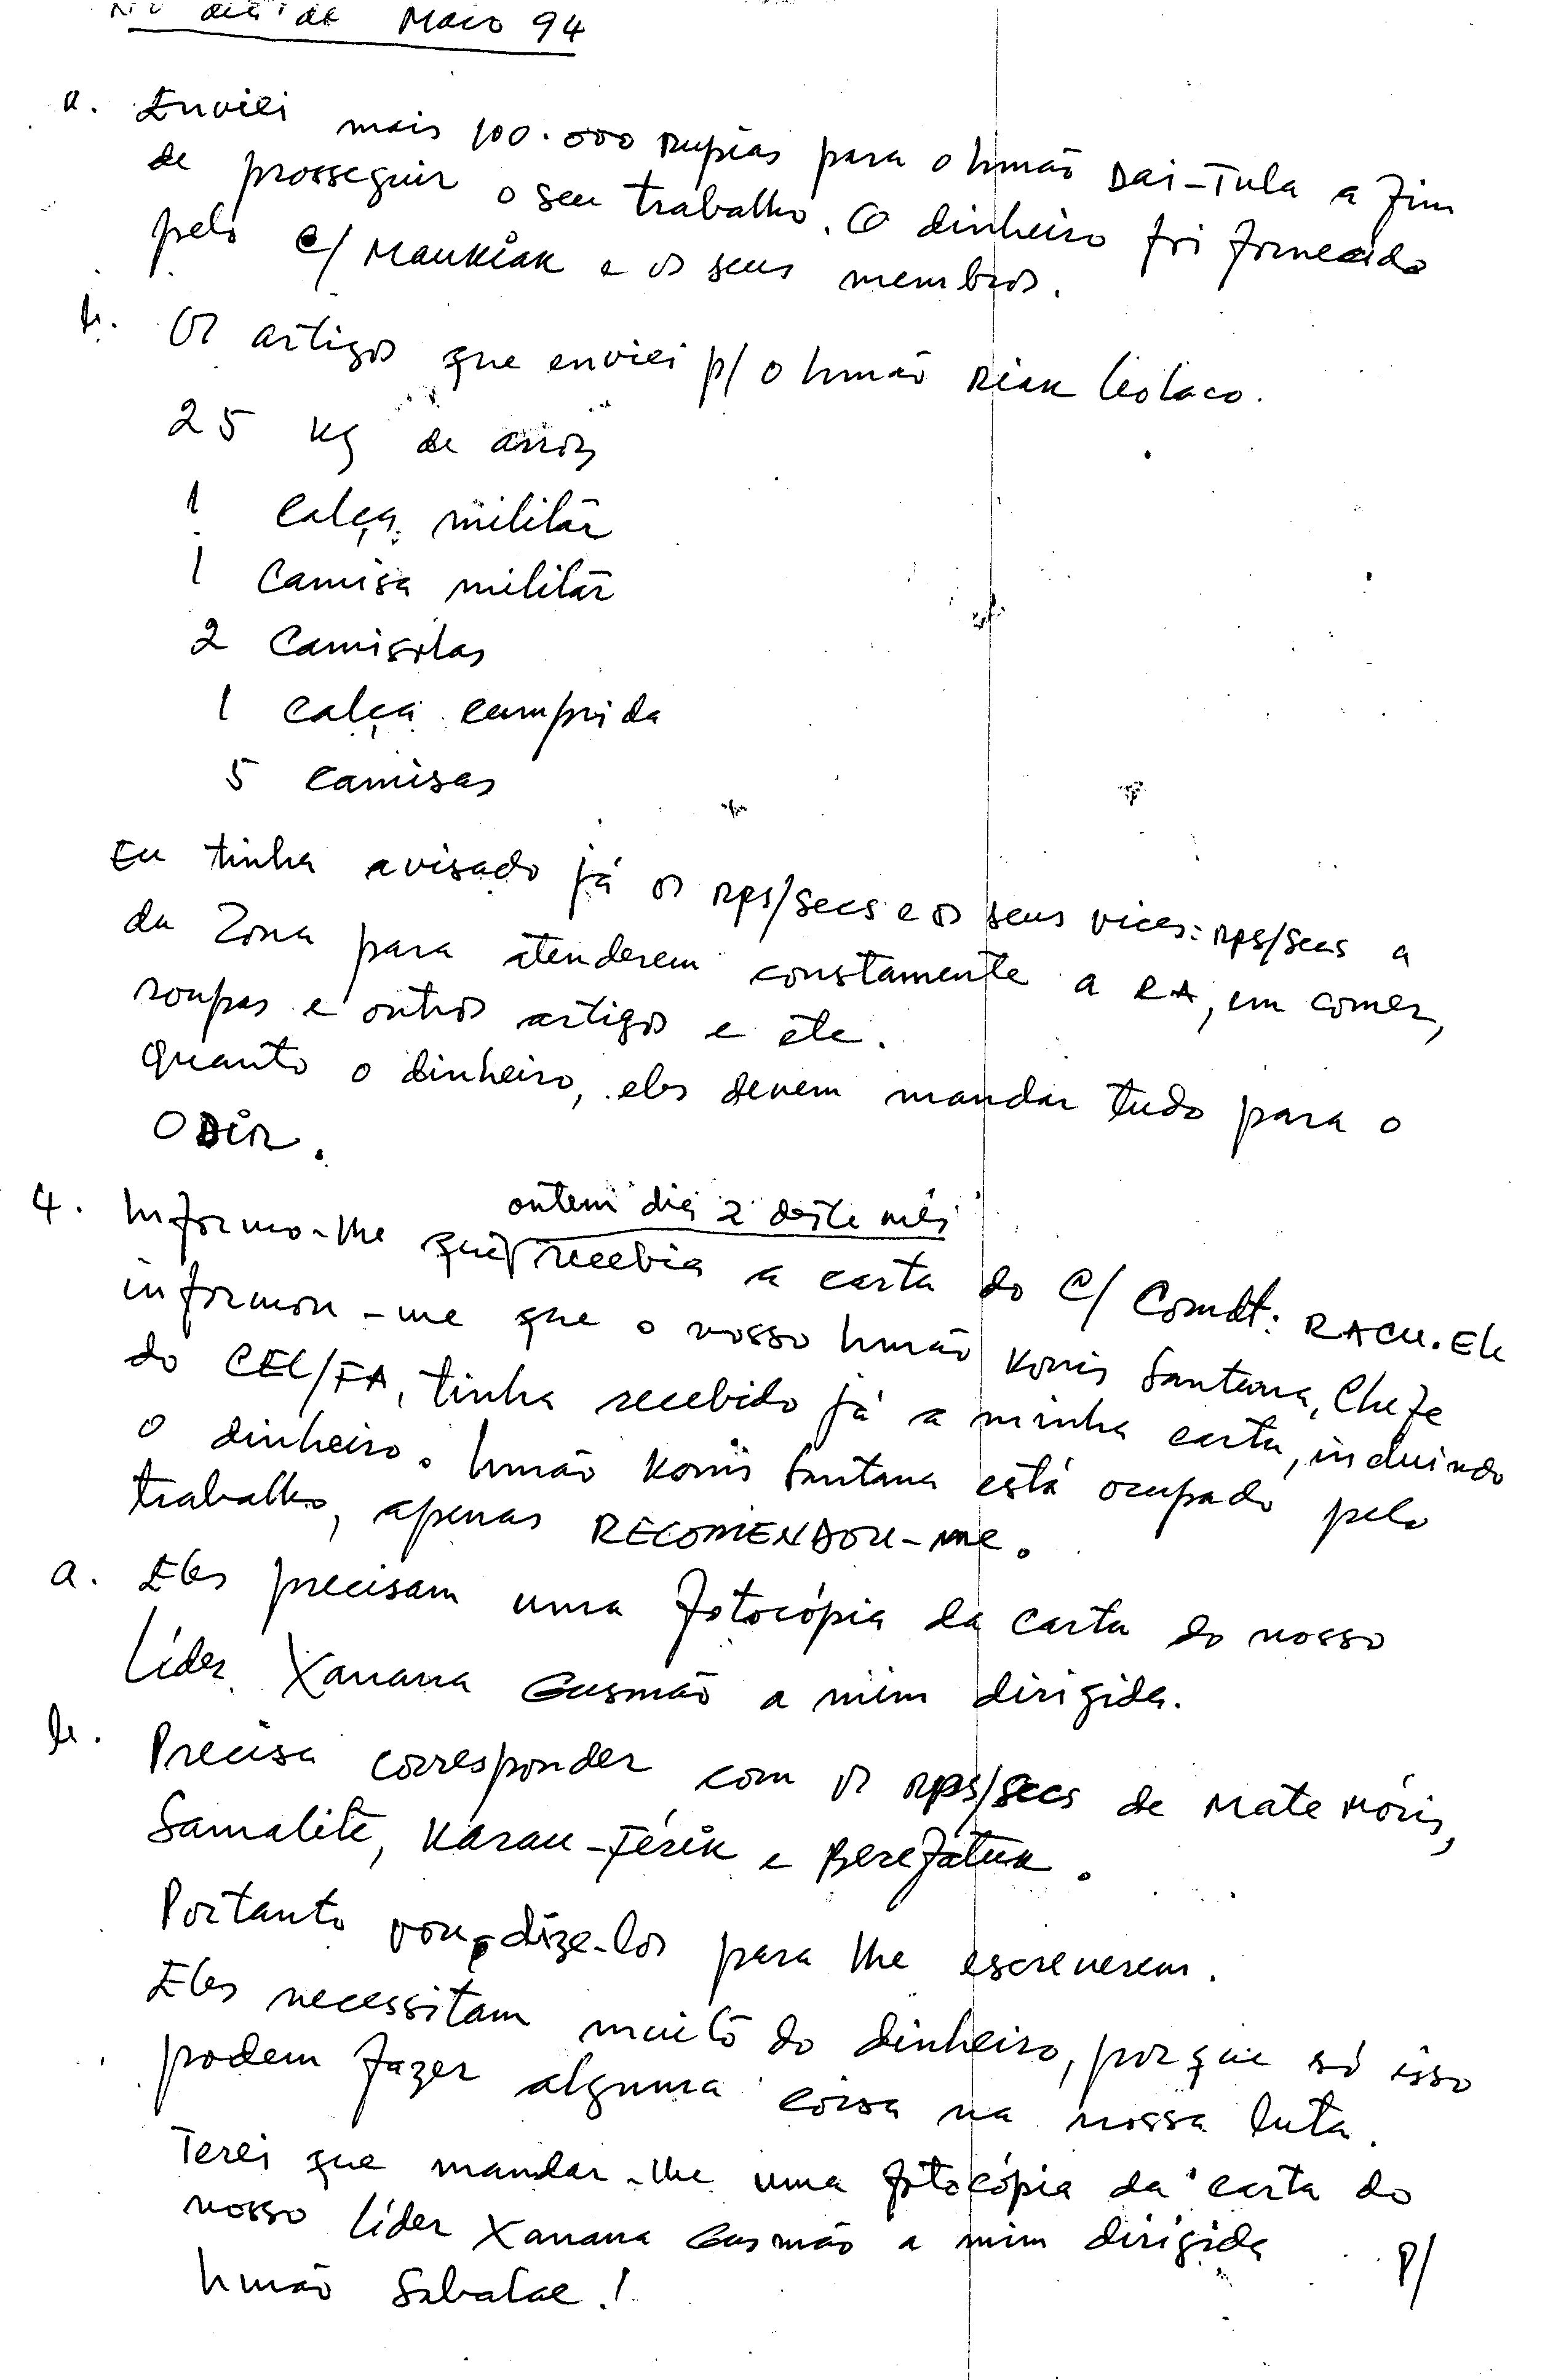 de Maio 94
a. Enviei mais 100.000 Rupias para o Irmão Dai-Tula a fim
de prosseguir o seu trabalho. O dinheiro foi fornecido
pelo C/ Maukiak e os seus membros.
b. Os artigos que enviei p/ o Irmão Riak Leolaco.
25 kg de arroz
1 Calça militár
1 Camisa militár
2 Camisolas
1 Calça cumprida
5 Camisas
Eu tinha avisado já os Rps/Secs e os seus vices: Rps/Secs a
da Zona para atenderem constamente a RA, em comer,
roupas e outros artigos e etc.
Quanto o dinheiro, eles devem mandar tudo para o
ODIR.
ontem dia 2 deste mês
4. Informo-lhe que recebia a carta do C/ Comdt: RACU. Ele
informou-me que o nosso Irmão Konis Santana, Chefe
do CEL/FA, tinha recebido já a minha carta, incluindo
o dinheiro. Irmão Konis Santana está ocupado pelo
trabalho, apenas RECOMENDOU-me.
a. Eles precisam uma fotocópia da carta do nosso
Líder Xanana Gusmão a mim dirigida.
b. Precisa corresponder com os Rps/Secs de Mate Hóris,
Samalete, Karau-Férik e Berefatuk.
Portanto vou dize-los para lhe escreverem.
Eles necessitam muito do dinheiro, porque só isso
podem fazer alguma coisa na nossa luta.
Terei que mandar-lhe uma fotocópia da carta do
nosso líder Xanana Gusmão a mim dirigida P/
Irmão Sabalae!